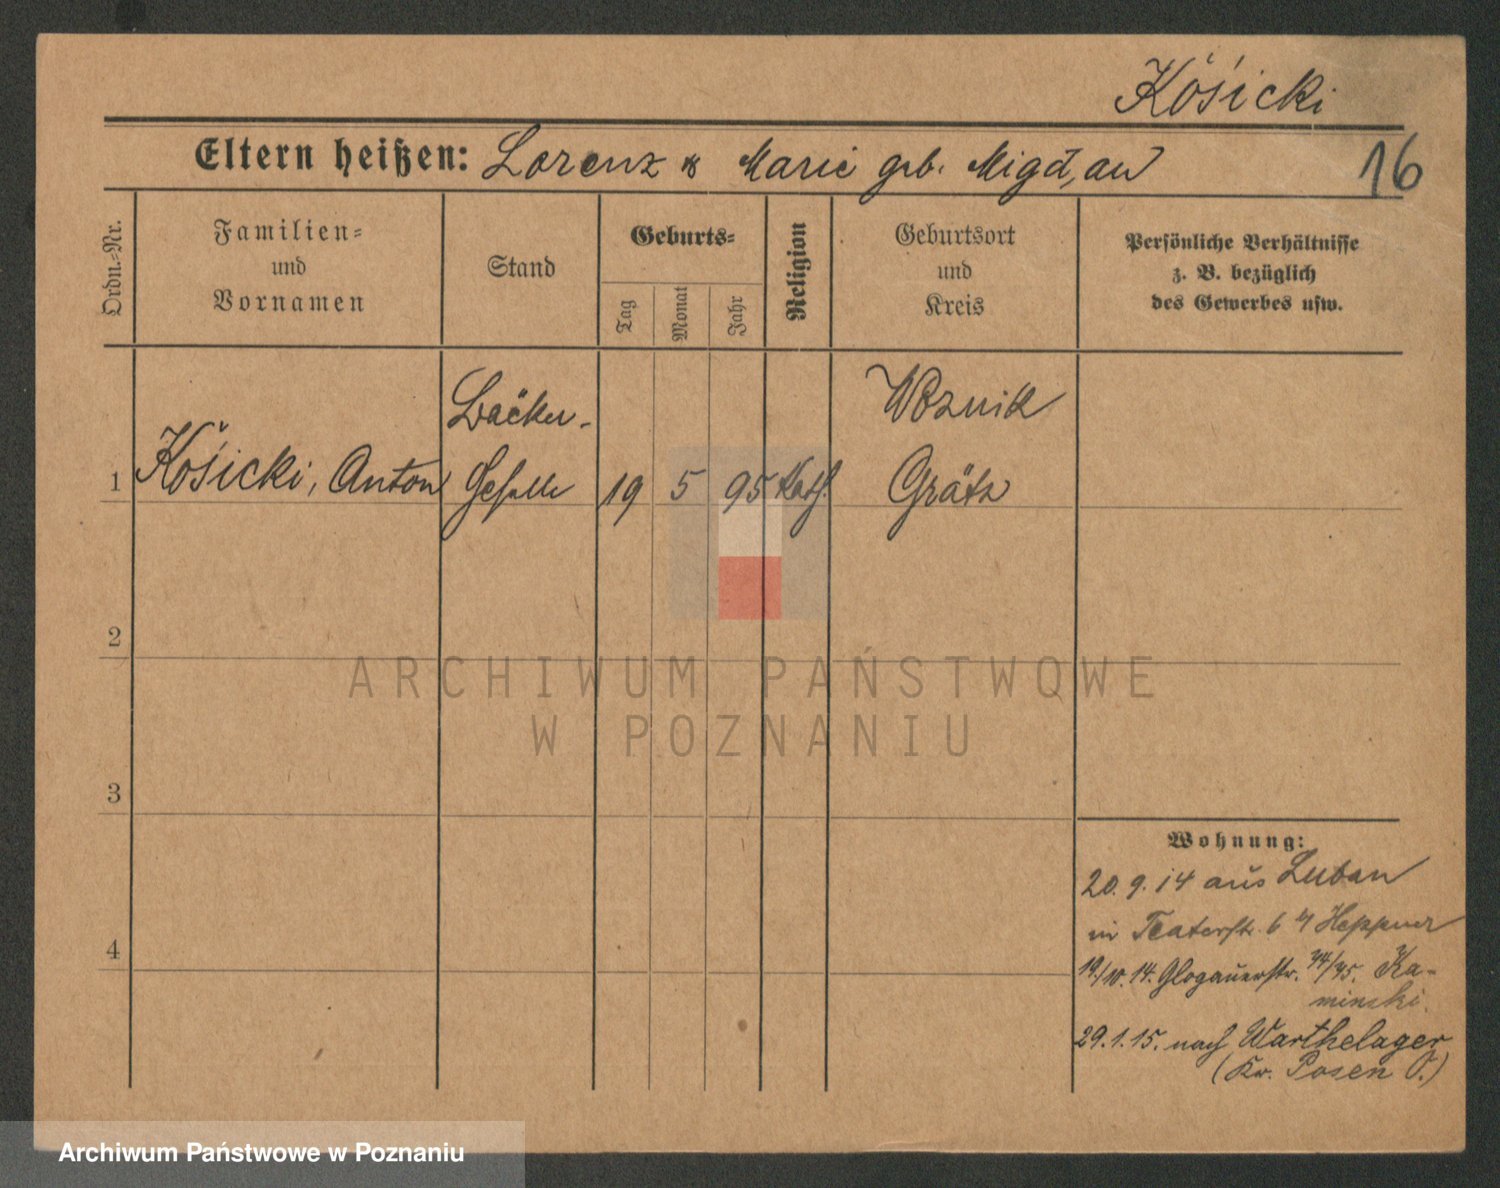 Kośicki
Eltern heißen: Lorenz & Marie geb.
16
Ordn.-Nr.
Familien-
und
Vornamen
Stand
Geburts-
Tag
Monat
Jahr
Religion
Geburtsort
und
Kreis
Persönliche Verhältnisse
z. B. bezüglich
des Gewerbes usw.
1
Kośicki, Anton
Bäcker-
Geselle
19
5
95
Kath.
Woznik
Grätz
2
3
4
Wohnung:
20.9.14 aus Luban
in Teaterstr. 6 Heppner
19/10.14. Glogauerstr. 74/75. Ka-
minski.
29.1.15. nach Warthelager
(Kr. Posen O.)
ARCHIWUM PAŃSTWOWE
W POZNANIU
Archiwum Państwowe w Poznaniu